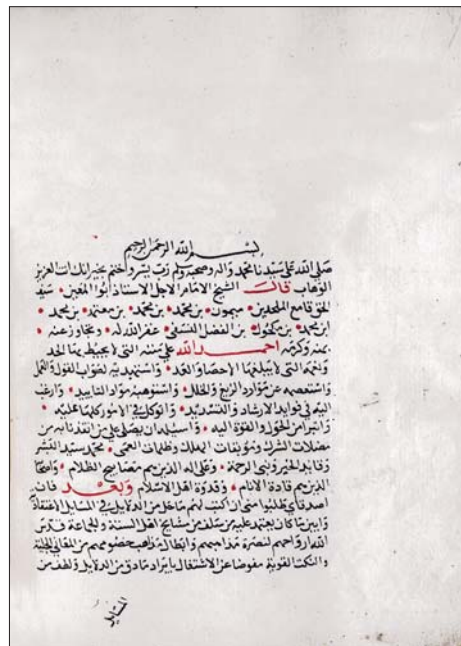 بسم الله الرحمن الرحيم
صلى الله على سيدنا محمد واله وصحبه وسلم رب يسر واختم بخير انك انت العزيز
الوهاب قال الشيخ الامام الاجل الاستاذ ابو المعين سيف
الحق قامع الملحدين ميمون بن محمد بن محمد بن معتمد بن محمد
ابن محمد بن مكحول بن الفضل النسفى غفر الله له وتجاوز عنه
بمنه وكرمه احمد الله على مننه التى لا يحيط بها الحد
ونعمه التى لا يبلغها الاحصا والعد واستهديه لصواب القول والعمل
واستعصمه عن موارد الزيغ والخلل واستوهبه مواد التاييد وارغب
اليه فى فوايد الارشاد والتسديد واتوكل فى الامور كلها عليه
واتبرا من الحول والقوة اليه واسيله ان يصلى على من انقذنا به من
معضلات الشرك وموبقات المهلك وظلمات العمى محمد سيد البشر
وقايد الخير ونبى الرحمة وعلى اله الذين هم مصابيح الظلام واصحابه
الذين هم قادة الانام وقدوة اهل الاسلام وبعد فان
اصدقاى طلبوا منى ان اكتب لهم ما جل من الدلايل فى المسايل الاعتقادية
وابين ما كان يعتمد عليه من سلف من مشايخ اهل السنة والجماعة قدس
الله ارواحهم لنصرة مذاهبهم وابطال مذاهب خصومهم من المعانى الجلية
والنكت القوية مفوضا عن الاشتغال بايراد ما دق من الدلايل ولطف من
المسايل